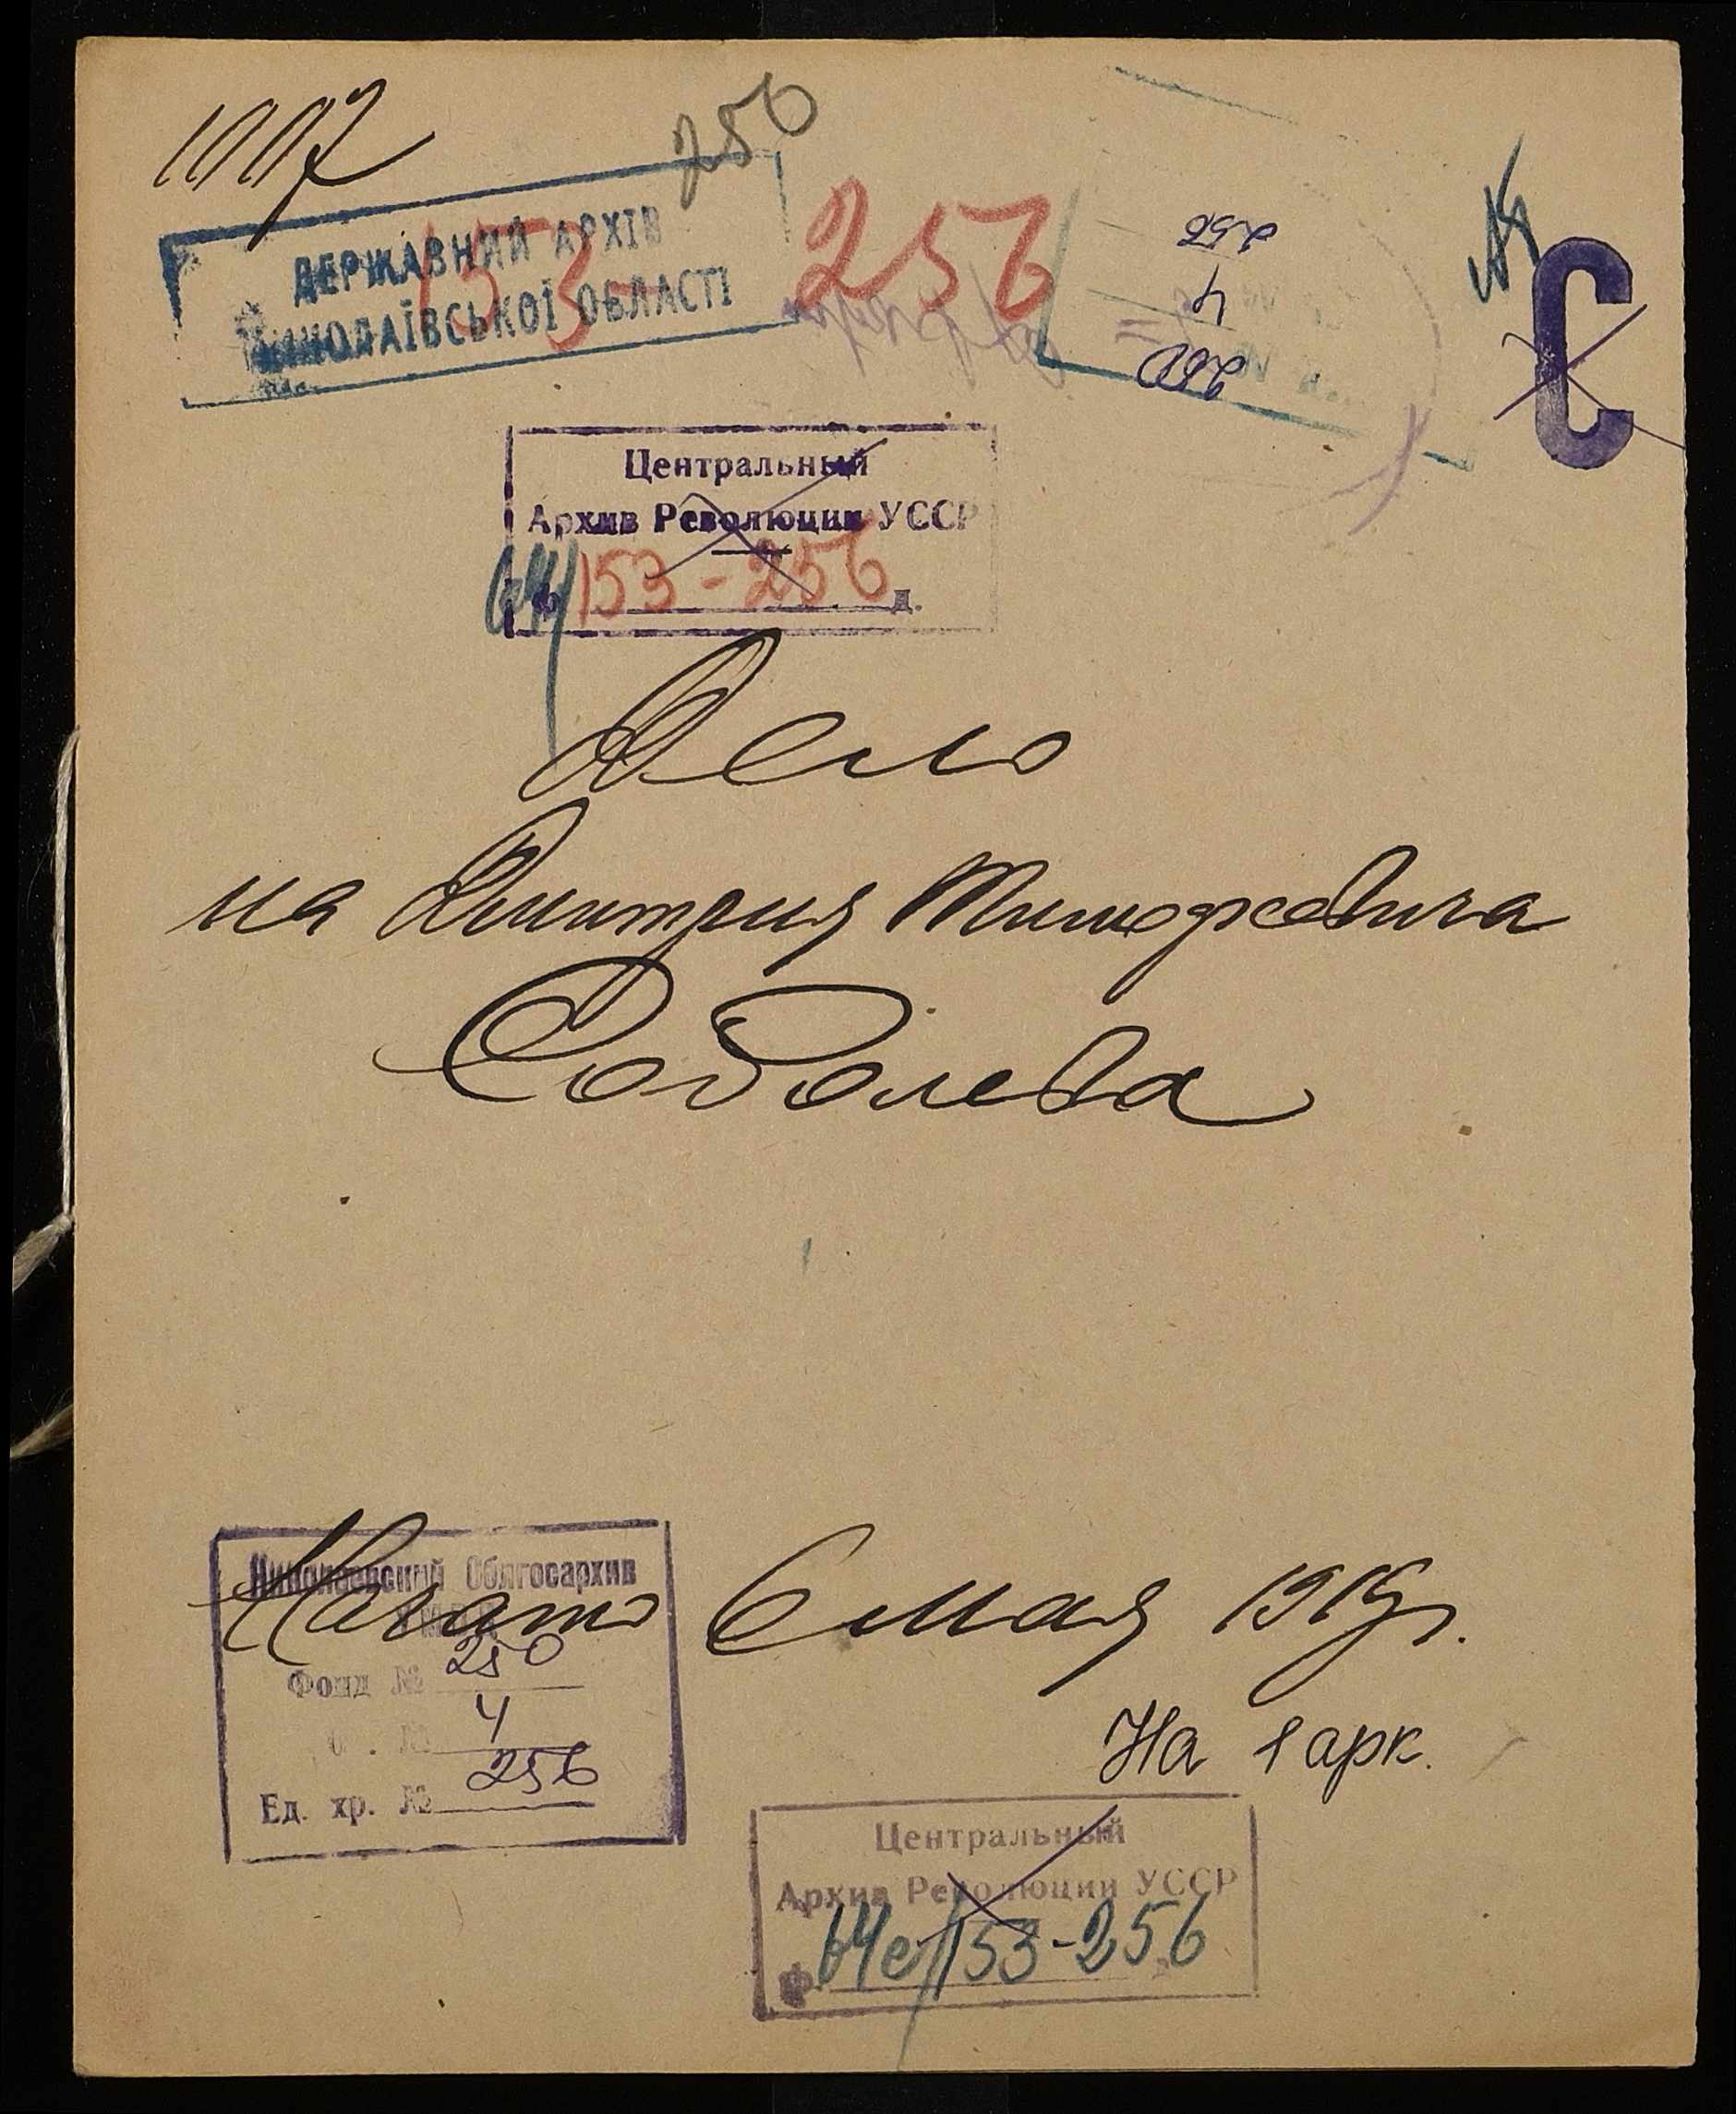 1007
250
ДЕРЖАВНИЙ АРХІВ
МИКОЛАЇВСЬКОЇ ОБЛАСТІ
153-
256
250
4
256
С
Центральный
Архив Революции УССР
153-256 д.
Дело
на Дмитрия Тимофеевича
Соболева
Николаевский Облгосархив
Начато 6 мая 1919 г.
Фонд № 250
4
Ед. хр. № 256
На 1 арк.
Центральный
Архив Революции УССР
ф. 64с/153-256